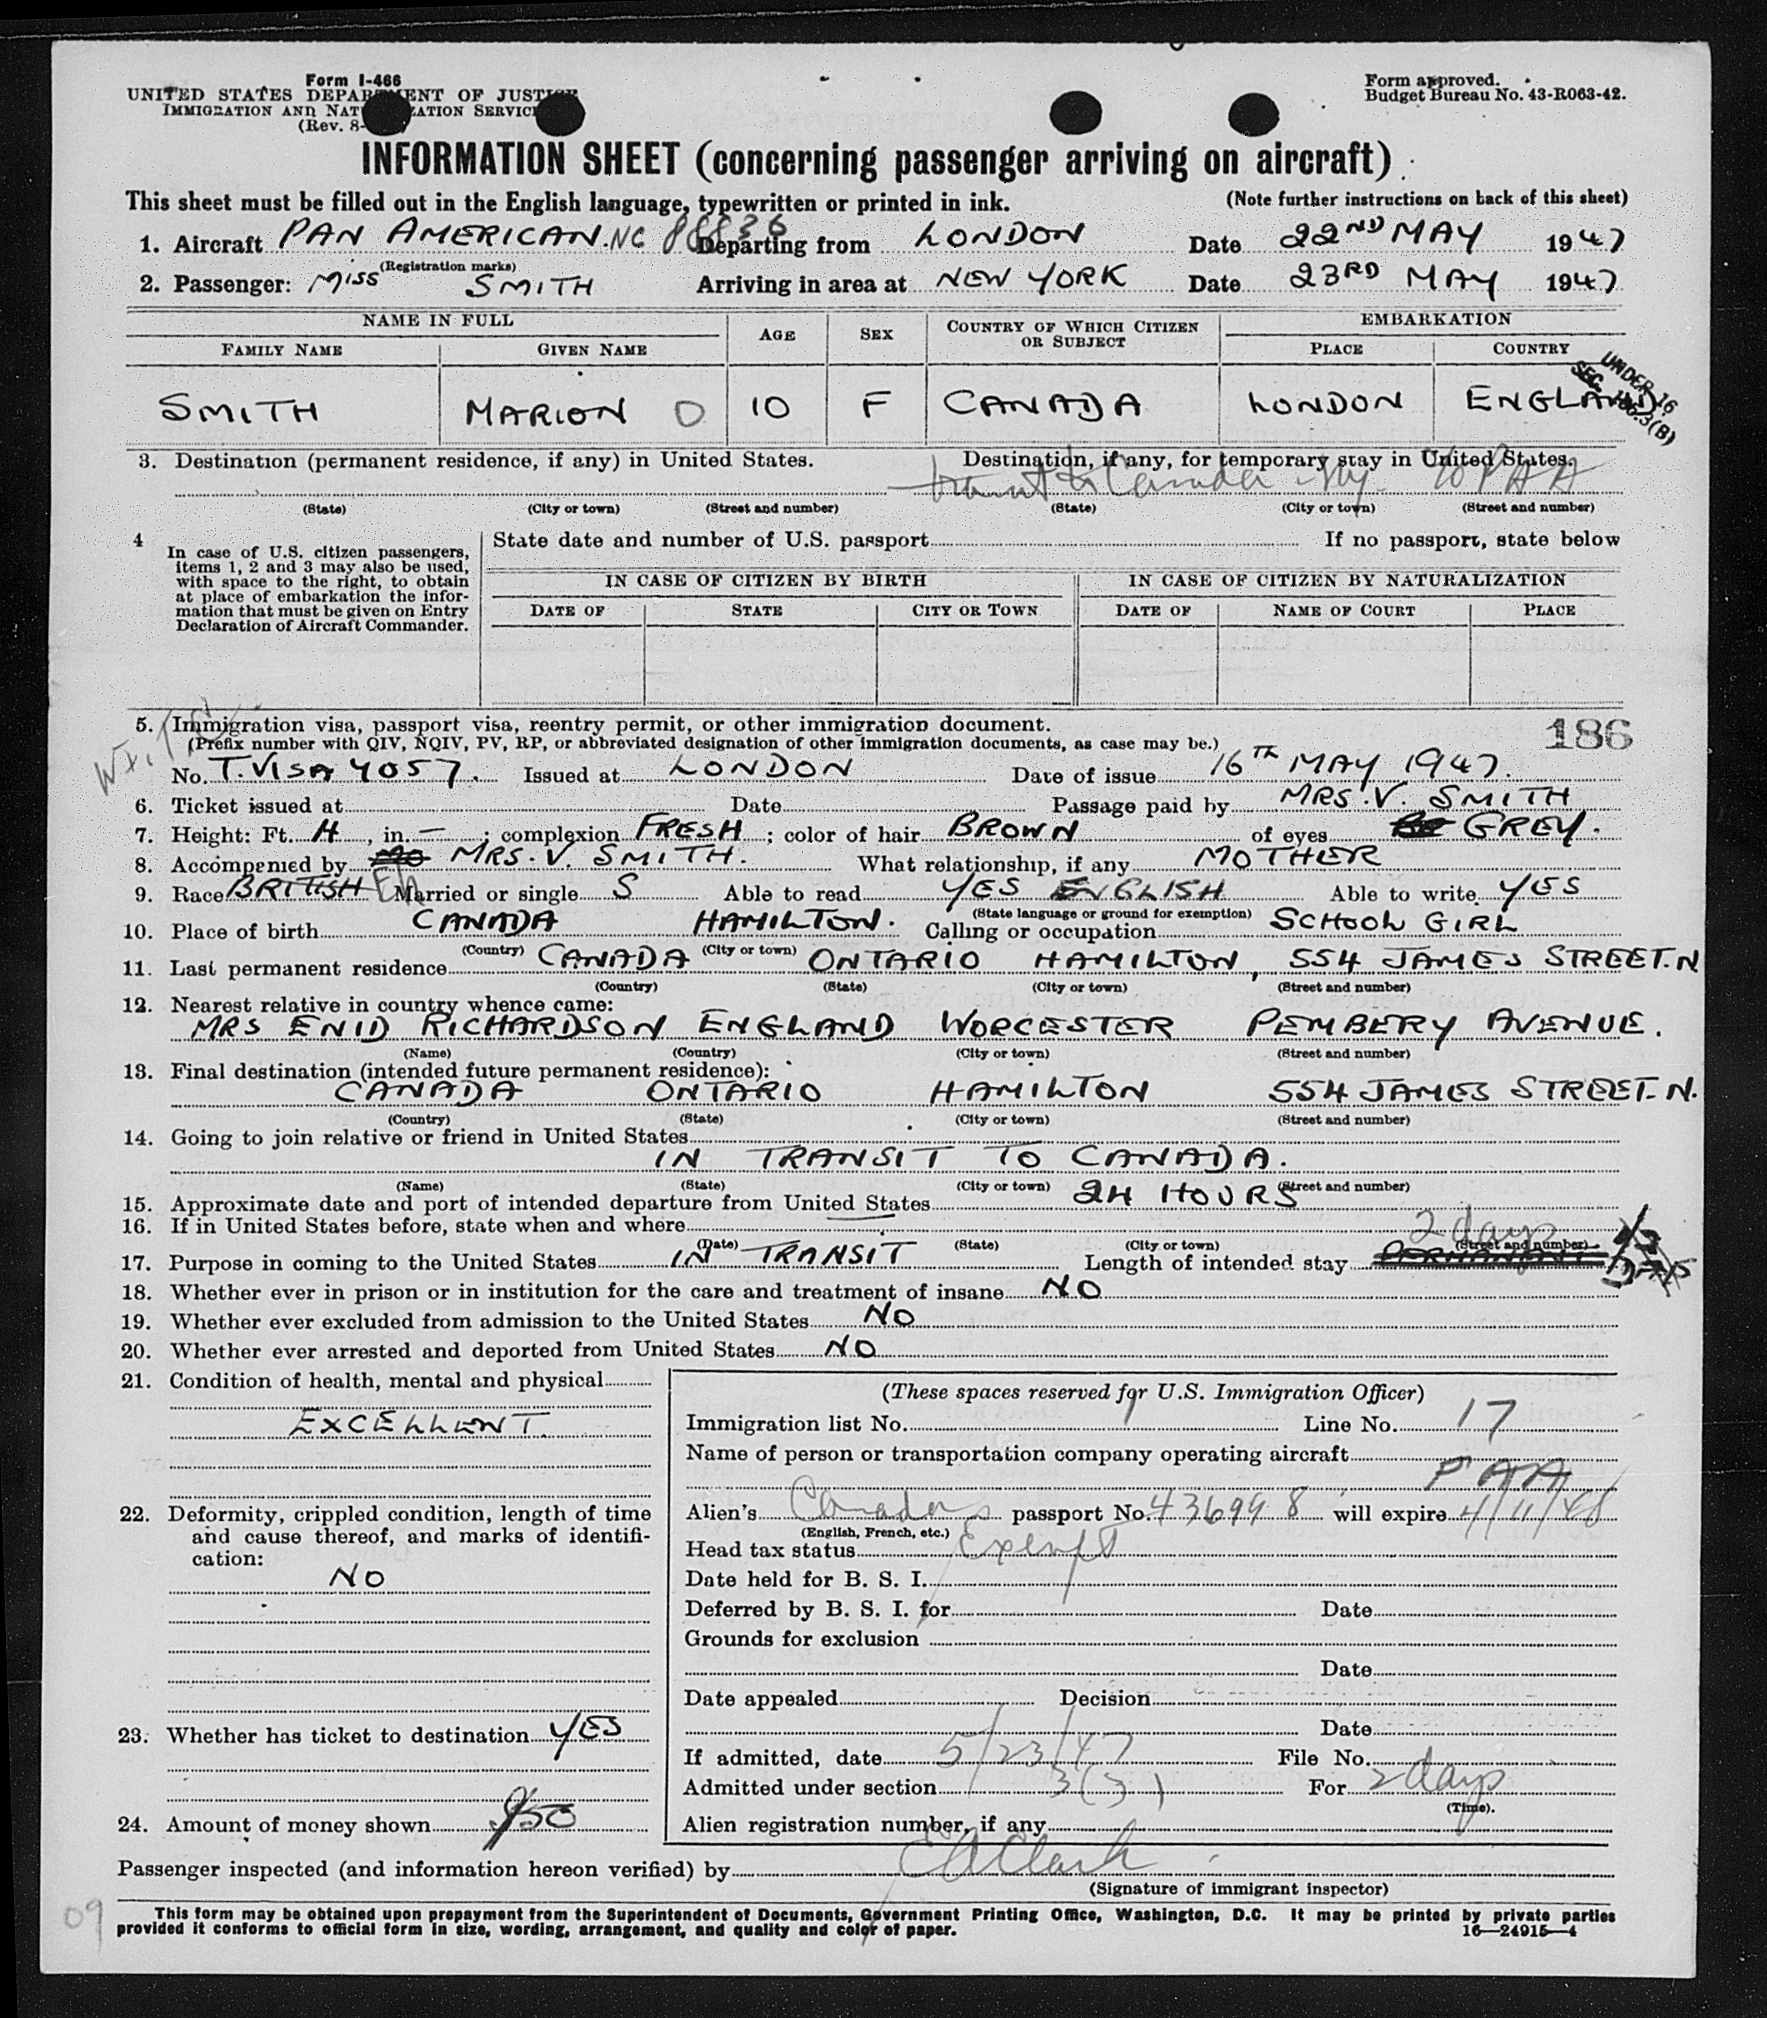 Form I-466
UNITED STATES DEPARTMENT OF JUSTICE
IMMIGRATION AND NATURALIZATION SERVICE
(Rev. 8-
Form approved.
Budget Bureau No. 43-R063-42.
INFORMATION SHEET (concerning passenger arriving on aircraft)
This sheet must be filled out in the English language, typewritten or printed in ink. (Note further instructions on back of this sheet)
1. Aircraft PAN AMERICAN. NC 88836 Departing from LONDON Date 22ND MAY 1947
(Registration marks)
2. Passenger: MISS SMITH Arriving in area at NEW YORK Date 23RD MAY 1947
NAME IN FULL AGE SEX COUNTRY OF WHICH CITIZEN OR SUBJECT EMBARKATION
FAMILY NAME GIVEN NAME PLACE COUNTRY
SMITH MARION D 10 F CANADA LONDON ENGLAND
UNDER 16
SEC. 3(B)
3. Destination (permanent residence, if any) in United States. Destination, if any, for temporary stay in United States.
transit to Canada NY % PAA
(State) (City or town) (Street and number) (State) (City or town) (Street and number)
4 In case of U.S. citizen passengers, items 1, 2 and 3 may also be used, with space to the right, to obtain at place of embarkation the information that must be given on Entry Declaration of Aircraft Commander.
State date and number of U.S. passport If no passport, state below
IN CASE OF CITIZEN BY BIRTH IN CASE OF CITIZEN BY NATURALIZATION
DATE OF STATE CITY OR TOWN DATE OF NAME OF COURT PLACE
5. Immigration visa, passport visa, reentry permit, or other immigration document. 186
(Prefix number with QIV, NQIV, PV, RP, or abbreviated designation of other immigration documents, as case may be.)
No. T.VISA 4057. Issued at LONDON Date of issue 16TH MAY 1947.
6. Ticket issued at Date Passage paid by MRS. V. SMITH
7. Height: Ft. 4, in. — ; complexion FRESH ; color of hair BROWN of eyes GREY.
8. Accompenied by MRS. V. SMITH. What relationship, if any MOTHER
9. Race BRITISH Eh Married or single S Able to read YES ENGLISH Able to write YES
(State language or ground for exemption)
10. Place of birth CANADA HAMILTON. Calling or occupation SCHOOL GIRL
(Country) (City or town)
11. Last permanent residence CANADA ONTARIO HAMILTON, 554 JAMES STREET. N
(Country) (State) (City or town) (Street and number)
12. Nearest relative in country whence came:
MRS ENID RICHARDSON ENGLAND WORCESTER PEMBERY AVENUE.
(Name) (Country) (City or town) (Street and number)
13. Final destination (intended future permanent residence):
CANADA ONTARIO HAMILTON 554 JAMES STREET. N.
(Country) (State) (City or town) (Street and number)
14. Going to join relative or friend in United States
IN TRANSIT TO CANADA.
(Name) (State) (City or town) (Street and number)
15. Approximate date and port of intended departure from United States 24 HOURS
16. If in United States before, state when and where
(Date) (State) (City or town) (Street and number)
17. Purpose in coming to the United States IN TRANSIT Length of intended stay PERMANENT 2 days
18. Whether ever in prison or in institution for the care and treatment of insane NO
19. Whether ever excluded from admission to the United States NO
20. Whether ever arrested and deported from United States NO
21. Condition of health, mental and physical
EXCELLENT.
22. Deformity, crippled condition, length of time
and cause thereof, and marks of identifi-
cation:
NO
23. Whether has ticket to destination YES
24. Amount of money shown $50
(These spaces reserved for U.S. Immigration Officer)
Immigration list No. Line No. 17
Name of person or transportation company operating aircraft
PAA
Alien's Canadas passport No. 436998 will expire 4/11/48
(English, French, etc.)
Head tax status Exempt
Date held for B. S. I.
Deferred by B. S. I. for Date
Grounds for exclusion
Date
Date appealed Decision
Date
If admitted, date 5/23/47 File No.
Admitted under section 3(3) For 2 days
(Time).
Alien registration number, if any
Passenger inspected (and information hereon verified) by EA Clark
(Signature of immigrant inspector)
09
This form may be obtained upon prepayment from the Superintendent of Documents, Government Printing Office, Washington, D.C. It may be printed by private parties
provided it conforms to official form in size, wording, arrangement, and quality and color of paper. 16—24915-4